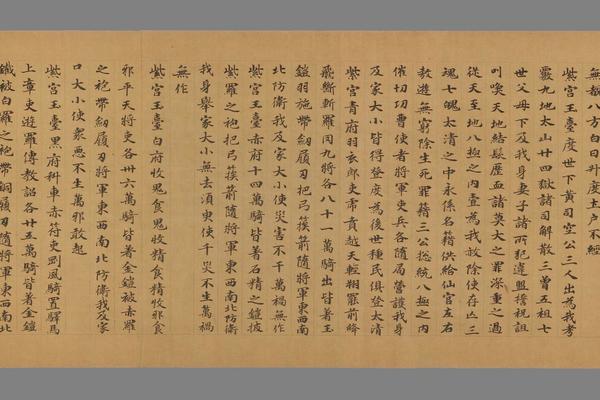 無翻八方白日升度土戶不經
紫宮玉臺度世下黃司空公三人出為我考
覈九地太山廿四獄諸司解散三曾五祖七
世父母下及我身妻子諸所犯違盟誓祝詛
叫喚天地結髮歷血諸莫大之罪深重之過
從天至地八極之內壹為我放除使存亡三
魂七魄太清之中永係名籍供給仙官左右
敖遊無窮除生死罪籍三公揔統八極之內
催切切曹使者將軍吏兵各隨局營護我身
及家大小皆得登度為後世種民俱登太清
紫宮青府羽衣郎吏帶賁越天輕翔羅前鋒
飛斷斬羅闬九將各八十一萬騎出皆著玉
鎧羽施帶劒履刃把弓筷箭隨將軍東西南
北防衛我及家大小使災害不干萬禍無作
紫宮玉臺赤府十四萬騎皆著石精之鎧披
紫羅之袍把弓筷箭隨將軍東西南北防衛
我身舉家大小無去湏臾使千災不生萬禍
無作
紫宮玉臺白府收鬼食鬼收精食精收邪食
邪平天將吏各卅六萬騎皆著金鎧被赤羅
之袍帶劒履刃將軍東西南北防衛我及家
口大小使衆惡不生萬邪敢起
紫宮玉臺黑府科車赤符吏罡風騎置驛馬
上章吏遊羅傳教詔各廿五萬騎皆著金鎧
鐵被白羅之袍帶銅履刃隨將軍東西南北